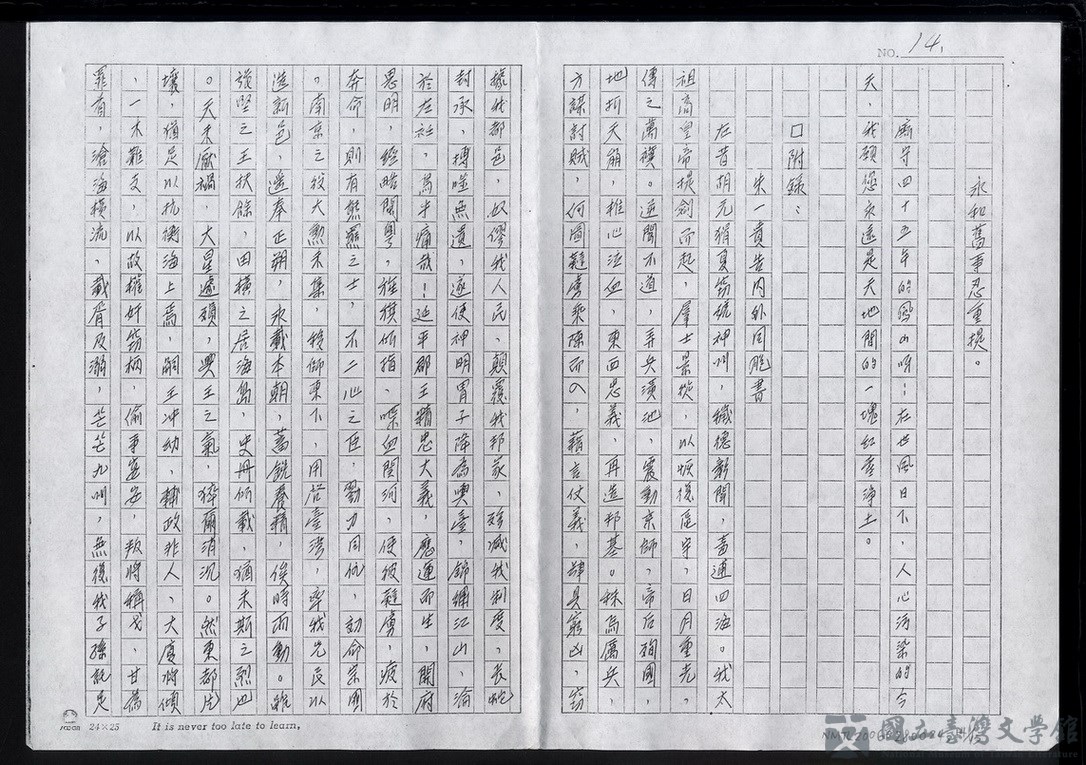 NO. 14.
永和舊事忍重提。
廝守四十五年的鳳山呀!在世風日下、人心污染的今
天,我願您永遠是天地間的一塊紅塵淨土。
口附錄:
朱一貴告內外同胞書
在昔胡元猾夏竊號神州,穢德彰聞,毒逋四海。我太
祖高皇帝提劍而起,羣士景從,以恢復區宇,日月重光,
傳之萬禩。逆闖不道,弄兵潢池,震動京師,帝后殉國,
地坼天崩,椎心泣血,東西思義,再造邦基。秣馬厲兵,
方謀討賊,何圖韃虜乘隙而入,藉言仗義,肆其窮凶,竊
據我都邑,奴僇我人民、顛覆我邦家,殄滅我制度,長蛇
封承,摶噬無遺,遂使神明胄子降為輿臺,錦繡江山,淪
於左衽,烏乎痛哉!延平郡王精忠大義,應運而生,開府
思明,經略閩粵,旌旗所指,喋血關河,使彼韃虜,疲於
奔命,則有熊羆之士,不二心之臣,勠力同仇,効命宗國
。南京之役大勳未集,移師東下,用啓臺灣,率我先民以
造新邑,遙奉正朔,永戴本朝,蓄銳養精,俟時而動。雖
張堅之王扶餘,田橫之居海島,史冊所載,猶未斯之烈也
。天未厭禍,大星遽隕,興王之氣,猝爾消沉。然東都片
壤,猶足以抗衡海上焉,嗣王沖幼,輔政非人,大廈將傾
,一木難支,以故權奸竊柄,偷事宴安,叛將稱戈,甘為
罪首,滄海橫流,載胥及溺,芒芒九州,無復我子孫託足
24×25 It is never too late to learn,
國立臺灣文學館
National Museum of Taiwan Literature